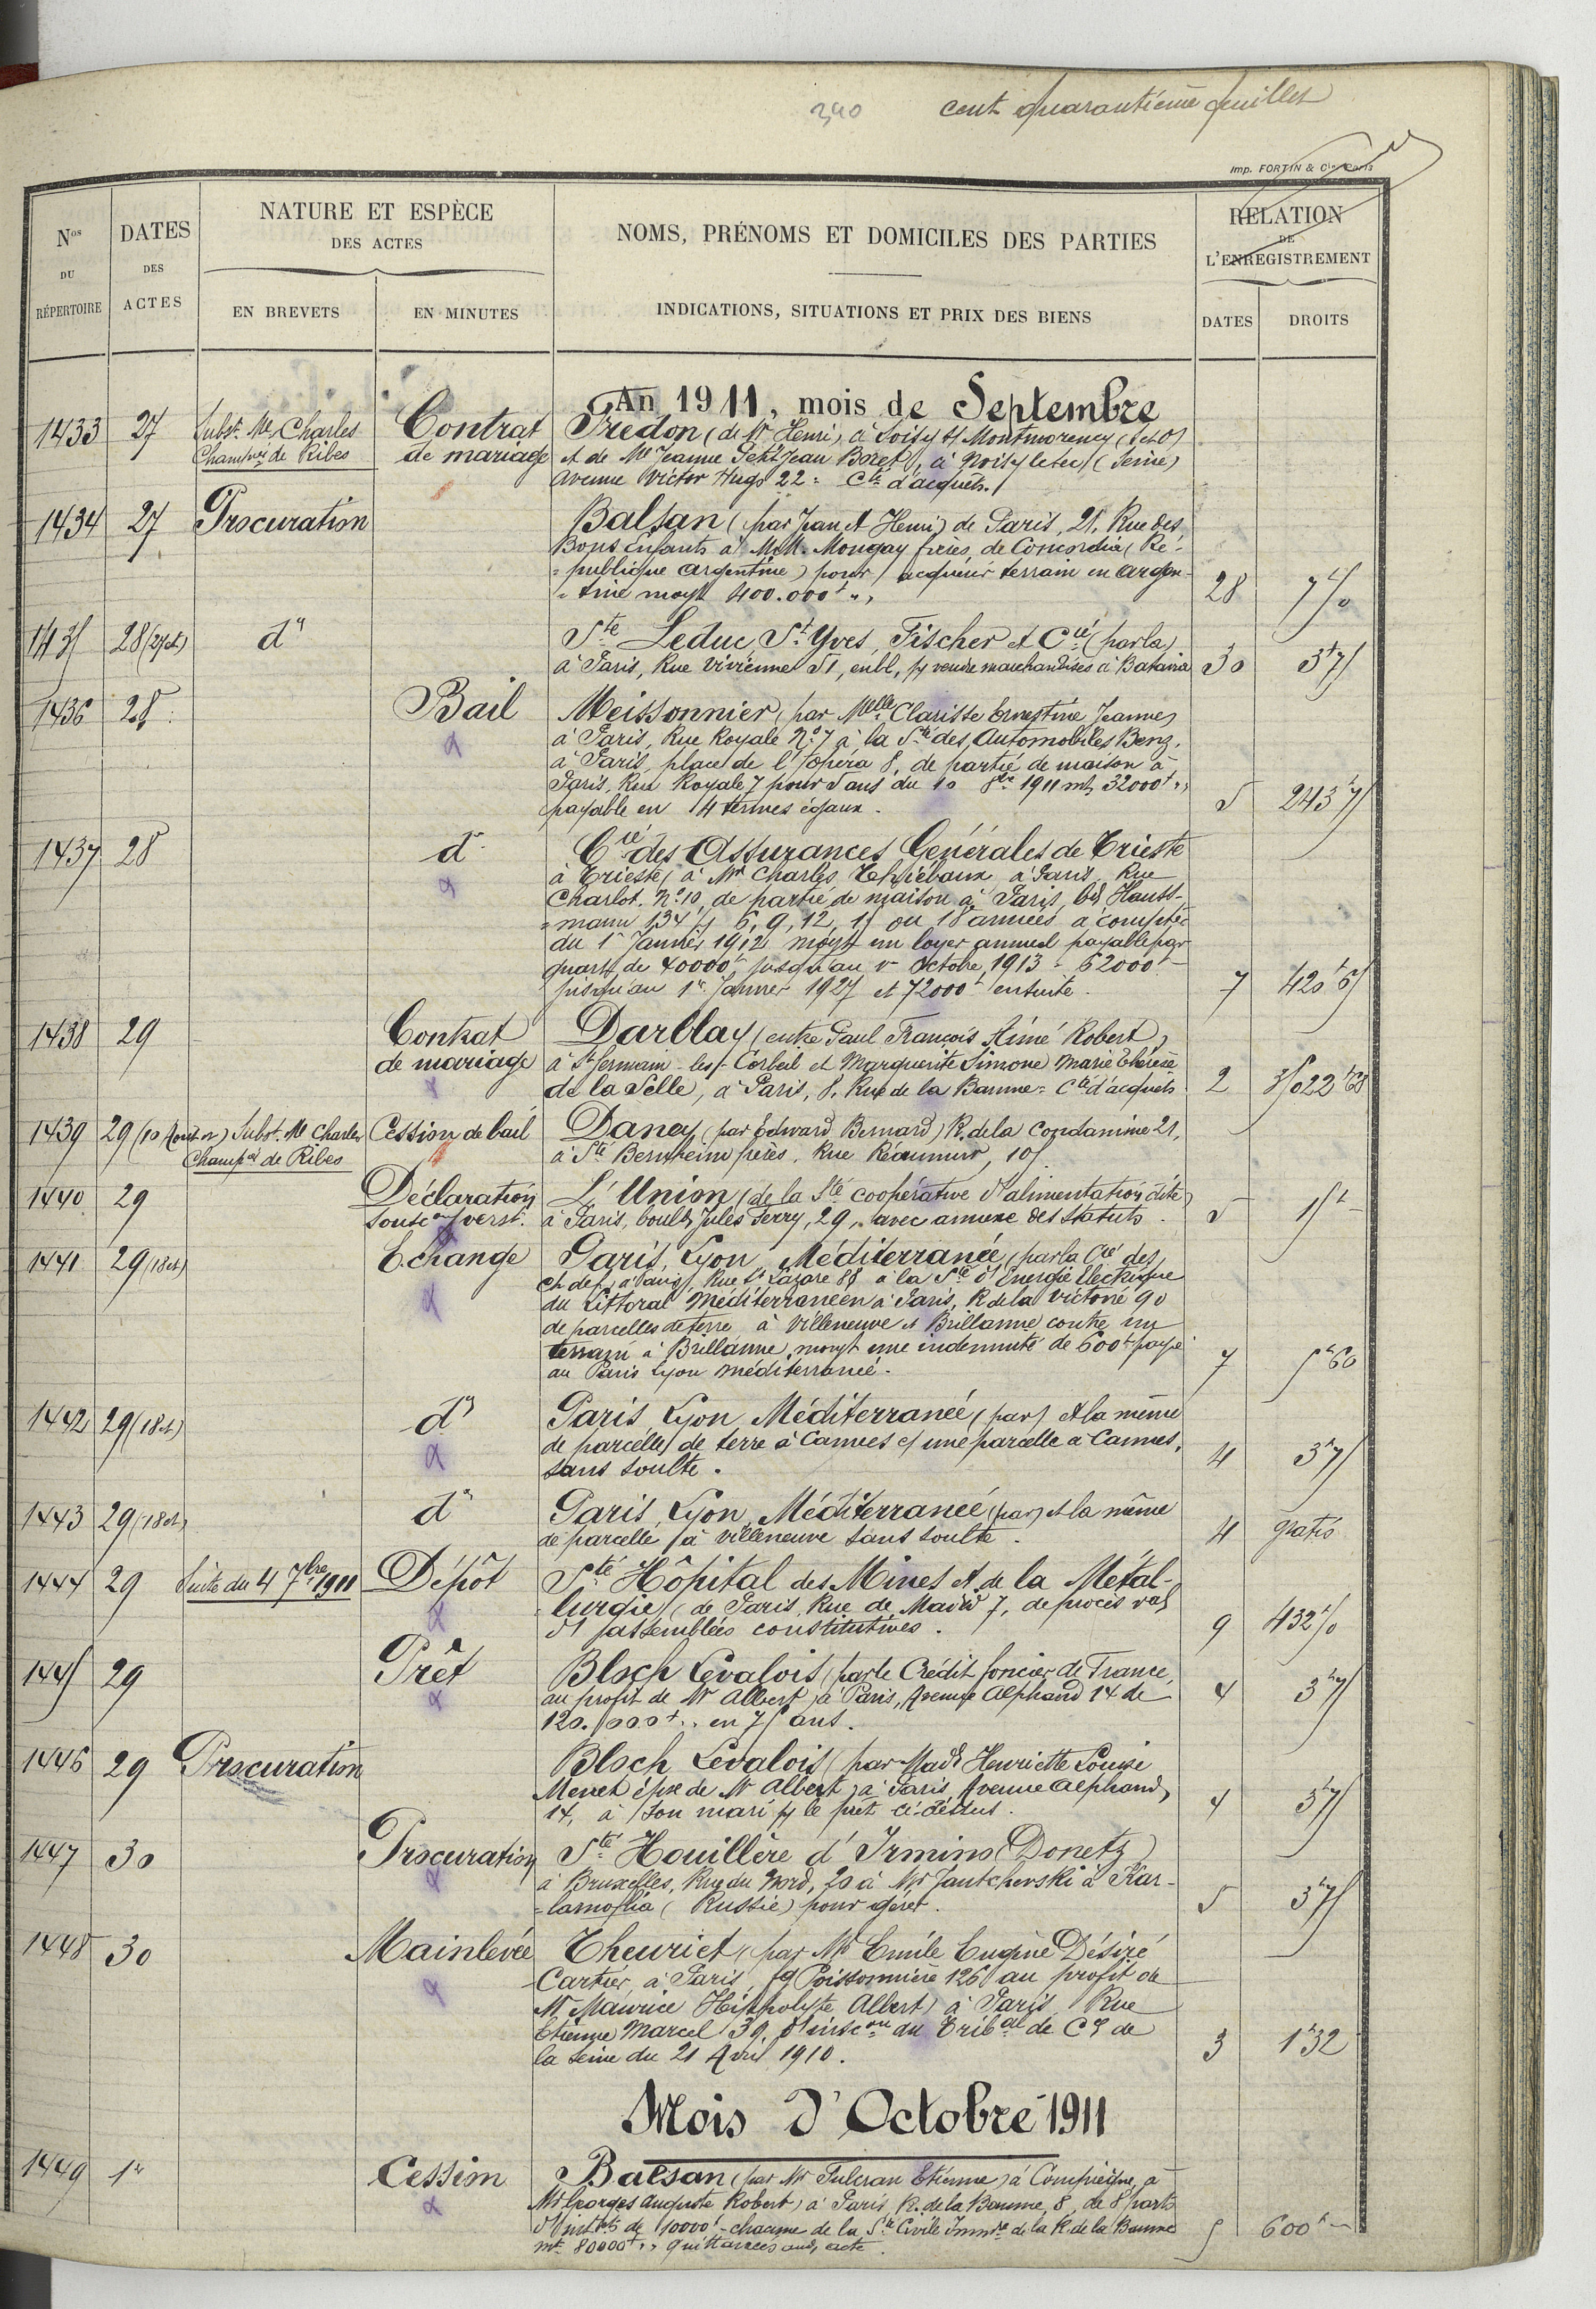 340 cent quarantième feuillet
Imp. FORTIN & Cie Paris
Nos DU RÉPERTOIRE
DATES DES ACTES
NATURE ET ESPÈCE DES ACTES
EN BREVETS
EN MINUTES
NOMS, PRÉNOMS ET DOMICILES DES PARTIES
INDICATIONS, SITUATIONS ET PRIX DES BIENS
RELATION DE L'ENREGISTREMENT
DATES
DROITS
An 1911, mois de Septembre
1433 27 Subst. Me Charles Contrat Fredon (de Mr Henri) à Soisy s/ Montmorency (S et O)
Champer de Ribes de mariage et de Mlle Jeanne Petitjean Boret, à Noisy le sec (Seine)
Avenue Victor Hugo 22 = Cté d'acquêts.
1434 27 Procuration Balsan (par Jean et Henri) de Paris, 21, Rue des
Bons Enfants à MM. Mongay frères, de Concordia (Ré-
=publique Argentine) pour acquérir terrain en Argen-
=tine moyt 400.000f ,, 28 7f50
1435 28 (27 et) do Sté Leduc, St Yves, Fischer et Cie (par la)
à Paris, Rue Vivienne 51, en bl. pr vendre marchandises à Batavia 30 3f75
1436 28 Bail Meissonnier (par Melle Clarisse Ernestine Jeanne)
à Paris, Rue Royale No 7 à la Sté des Automobiles Benz,
à Paris, place de l'opéra 8, de partie de maison à
Paris, Rue Royale 7 pour 5 ans du 10 8bre 1911 mt 32000f ,,
payable en 4 termes égaux. 5 243f75
1437 28 do Cie des Assurances Générales de Trieste
à Trieste, à Mr Charles Thiébaux à Paris, Rue
Charlot, No 10, de partie de maison à Paris, bd Hauss-
=mann 134 pr 6, 9, 12, 15 ou 18 années à compter
du 1er Janvier 1912 moyt un loyer annuel payable par
quart de 40000f jusqu'au 1er Octobre 1913 - 62000f
jusqu'au 1er Janvier 1927 et 72000f ensuite. 7 420f65
1438 29 Contrat Darblay (entre Paul François Aimé Robert)
de mariage à St Germain-les-Corbeil et Marguerite Simone Marie Thérèse
de la Selle, à Paris, 8, Rue de la Baume = Cté d'acquêts 2 3022f68
1439 29 (10 Aout et) Subst. Me Charles Cession de bail Daney (par Edward Bernard) R. de la Condamine 21,
Champer de Ribes à Sté Bernheim frères, Rue Réaumur, 105
1440 29 Déclaration L'Union (de la Sté coopérative d'alimentation dite)
Souscon verst. à Paris, bould Jules Ferry, 29, avec annexe des statuts. 5 15f
1441 29 (18 et) Echange Paris, Lyon, Méditerranée (par la Cie des
ch de f, à Paris, Rue St Lazare 88 à la Sté d'Energie Electrique
du Littoral Méditerranéen à Paris, R de la Victoire 90
de parcelles de terre à Villeneuve et Brillanne contre un
terrain à Brillanne, moyt une indemnité de 600f payée
au Paris Lyon Méditerranée. 7 5f60
1442 29 (18 et) do Paris Lyon Méditerranée (par) et la même
de parcelles de terre à Cannes c/ une parcelle à Cannes,
sans soulte. 4 3f75
1443 29 (18 et) do Paris, Lyon, Méditerranée (par) et la même
de parcelle à Villeneuve sans soulte. 4 gratis
1444 29 Suite du 4 7bre 1911 Dépôt Sté Hôpital des Mines et de la Métal-
lurgie (de Paris, Rue de Madrid 7, de procès vax
d'assemblées constitutives. 9 432f50
1445 29 Prêt Bloch Levalois (par le Crédit foncier de France,
au profit de Mr Albert) à Paris, Avenue Alphand 14 de
120.000f ,, en 75 ans. 4 3f75
1446 29 Procuration Bloch Levalois (par Made Henriette Louise
Menet épse de Mr Albert) à Paris Avenue Alphand,
14, à son mari pr le prêt ci-dessus. 4 3f75
1447 30 Procuration Sté Houillère d'Irmino (Donetz)
à Bruxelles, Rue du Nord, 20 à Mr Jantchevski à Kar-
=lamoffka (Russie) pour gérer. 5 3f75
1448 30 Mainlevée Theuriet (par Mr Emile Eugène Désiré
Cartier, à Paris, fg Poissonnière 126 au profit de
Mr Maurice Hippolyte Albert) à Paris, Rue
Etienne Marcel 39, d'inscon au Tribal de Ce de
la Seine du 21 Avril 1910. 3 1f32
Mois d'Octobre 1911
1449 1er Cession Balsan (par Mr Fulcran Etienne) à Compiègne, à
Mr Georges Auguste Robert, à Paris, R. de la Baume, 8, de 8 parts
d'intêts de 10000f chacune de la Sté Civile Immre de la R. de la Baume
mt 80000f ,, quittancés audt acte. 5 600f